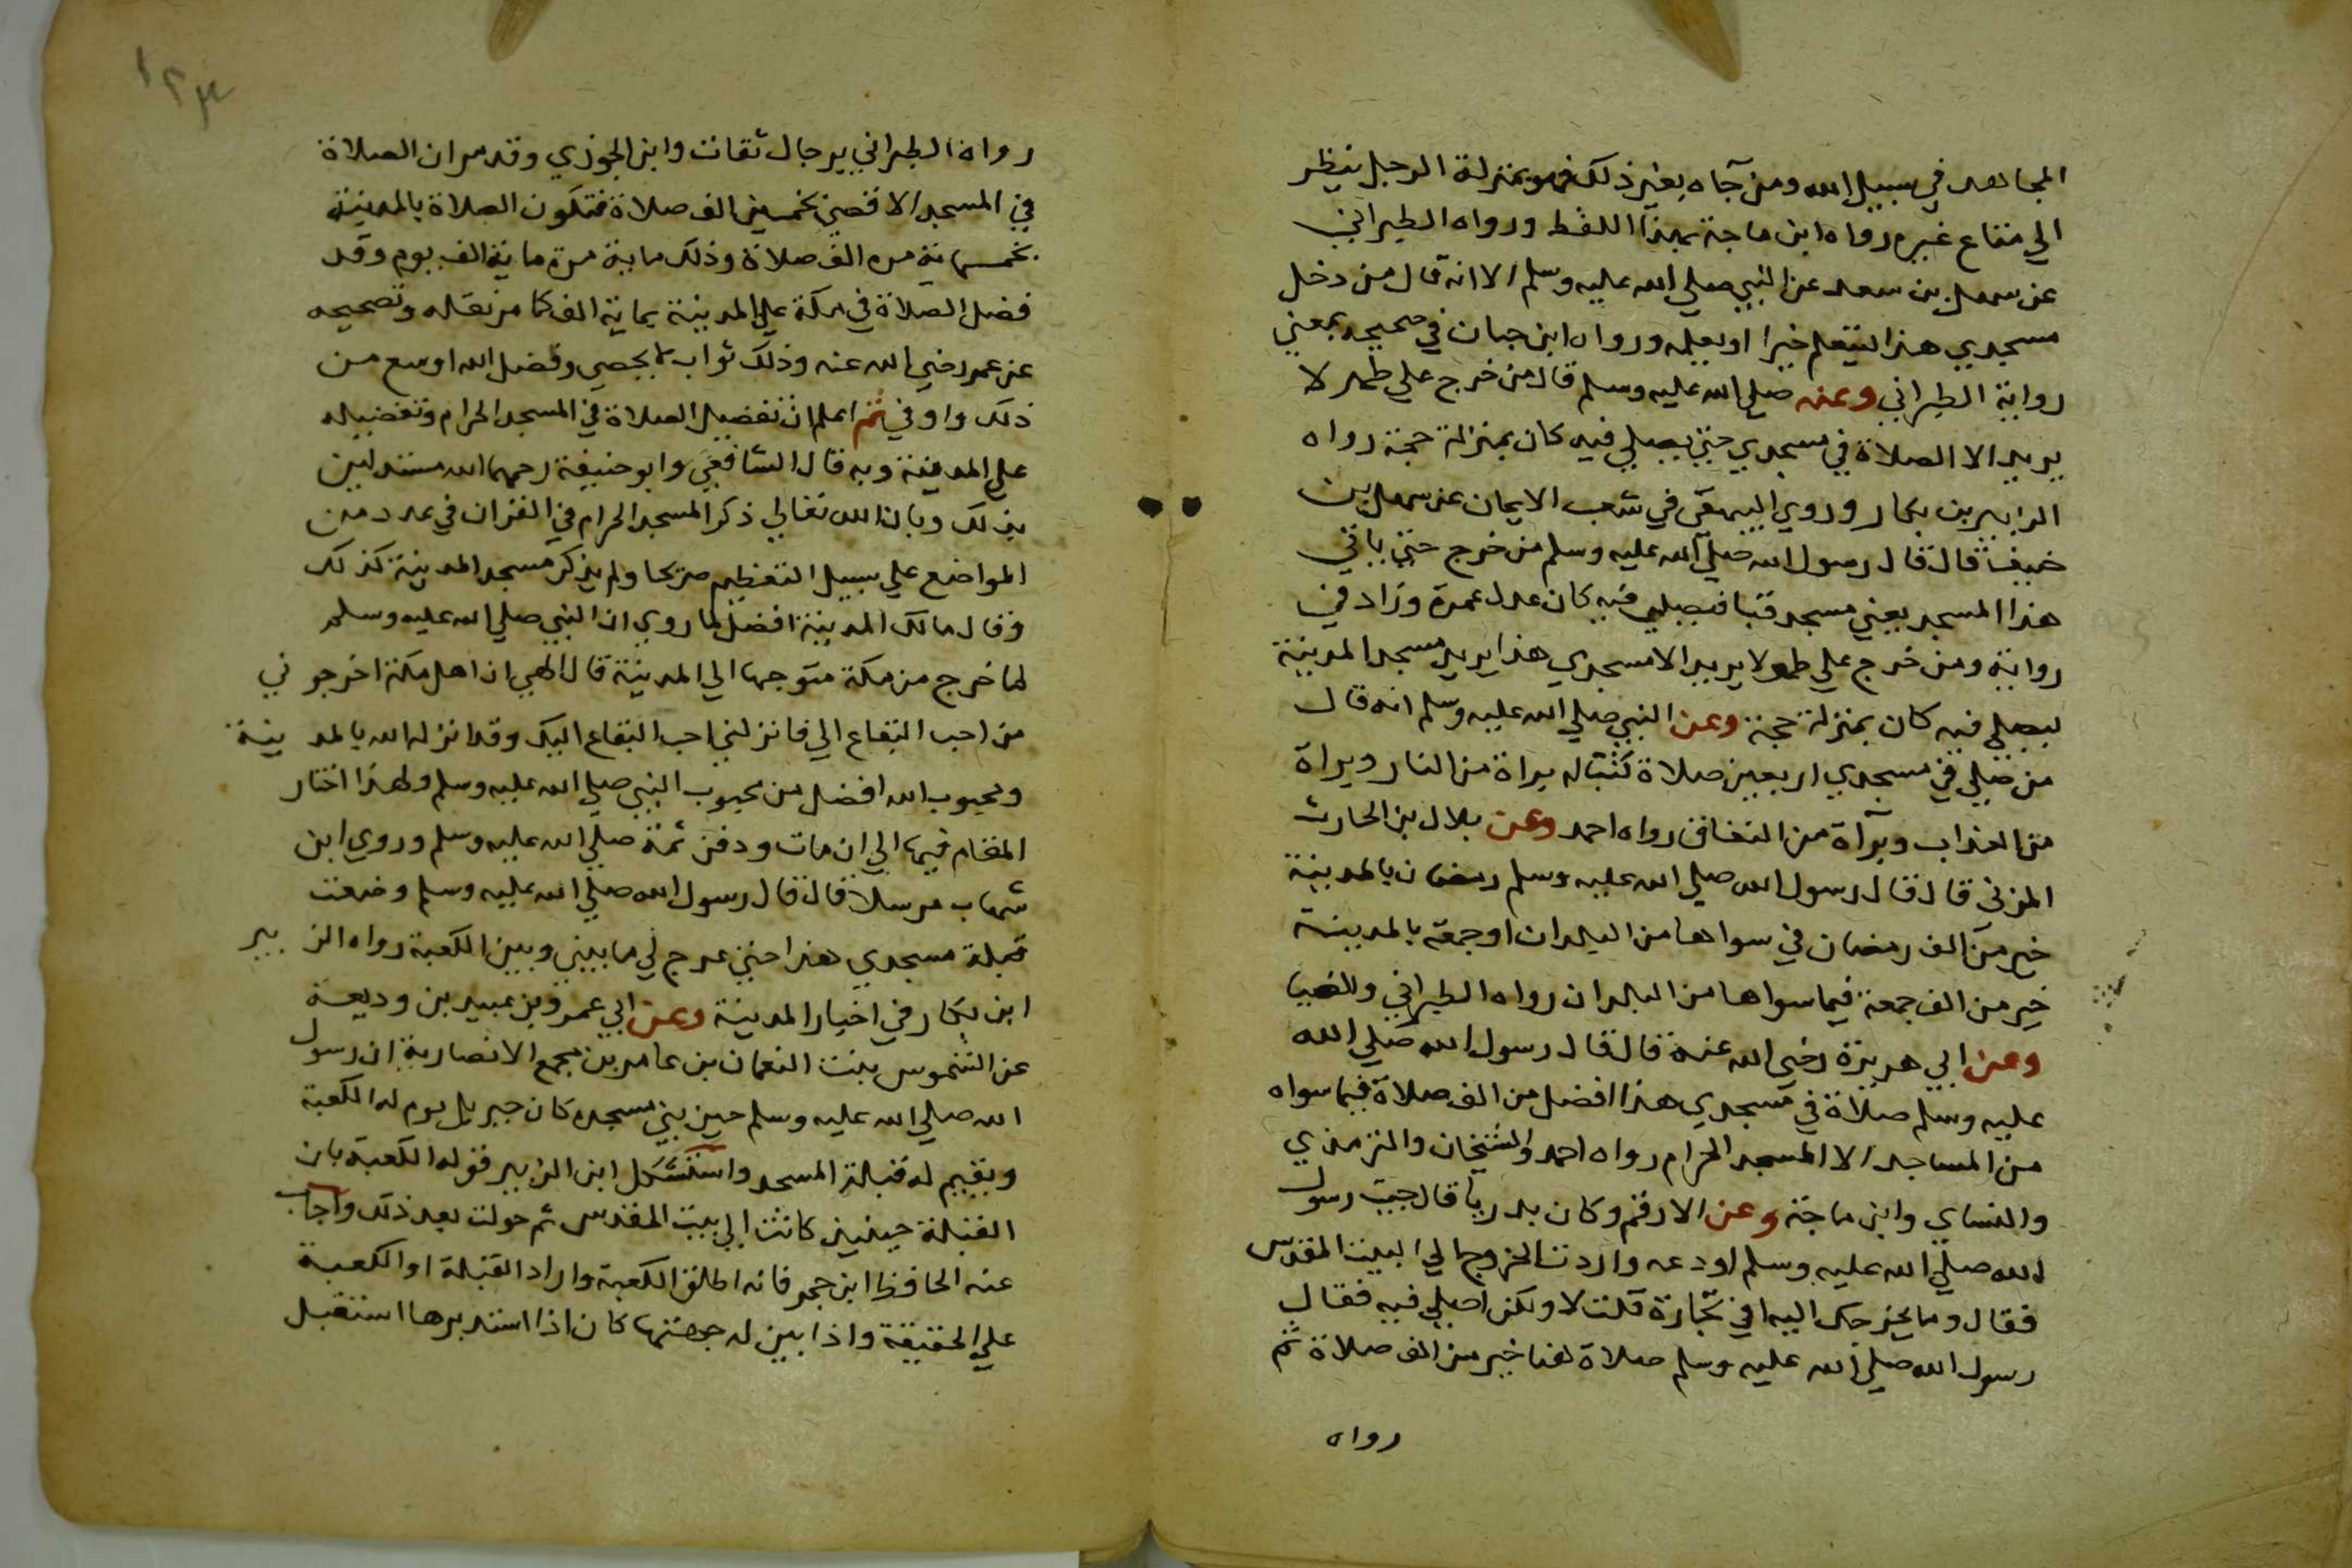 المجاهد في سبيل الله ومن جآه بغير ذلك فهو بمنزلة الرجل ينظر
الي متاع غيره رواه ابن ماجة بهذا اللفظ ورواه الطبراني
عن سهل بن سعد عن النبي صلي الله عليه وسلم الا انه قال من دخل
مسجدي هذا ليتعلم خيرا او يعلمه ورواه ابن حبان في صحيحه بمعني
رواية الطبراني وعنه صلي الله عليه وسلم قال من خرج علي طهر لا
يريد الا الصلاة في مسجدي حتي يصلي فيه كان بمنزلة حجة رواه
الزابير بن بكار وروي البيهقي في شعب الايمان عن سهل بن
حنيف قال قال رسول الله صلي الله عليه وسلم من خرج حتي ياتي
هذا المسجد يعني مسجد قبا فيصلي فيه كان عدل عمرة وزاد في
رواية ومن خرج علي طهر لا يريد الا مسجدي هذا يريد مسجد المدينة
ليصلي فيه كان بمنزلة حجة وعن النبي صلي الله عليه وسلم انه قال
من صلي في مسجدي اربعين صلاة كتب له براة من النار وبراة
من العذاب وبرآة من النفاق رواه احمد وعن بلال بن الحارث
المزني قال قال رسول الله صلي الله عليه وسلم رمضان بالمدينة
خير من الف رمضان في سواها من البلدان او جمعة بالمدينة
خير من الف جمعة فيما سواها من البلدان رواه الطبراني والضيا
وعن ابي هريرة رضي الله عنه قال قال رسول الله صلي الله
عليه وسلم صلاة في مسجدي هذا افضل من الف صلاة فيما سواه
من المساجد الا المسجد الحرام رواه احمد والشيخان والترمذي
والنساي وابن ماجة وعن الارقم وكان بدريا قال جيت رسول
الله صلي الله عليه وسلم لاودعه واردت الخروج الي البيت المقدس
فقال وما يخرجك اليه افي تجارة قلت لا ولكن اصلي فيه فقال
رسول الله صلي الله عليه وسلم صلاة هنا خير من الف صلاة ثم
رواه
١٢٣
رواه الطبراني برجال ثقات وابن الجوزي وقد مر ان الصلاة
في المسجد الاقصي بخمسين الف صلاة فتكون الصلاة بالمدينة
بخمسماية مرة الف صلاة وذلك ماية مرة ماية الف يوم وقد
فضل الصلاة في مكة علي المدينة بماية الف كما مر نقله وتصحيحه
عن عمر رضي الله عنه وذلك ثواب لا يحصي وفضل الله اوسع من
ذلك واوفي ثم اعلم ان تفضيل الصلاة في المسجد الحرام وتفضيله
علي المدينة وبه قال الشافعي وابو حنيفة رحمهما الله مستدلين
بذلك وبان الله تعالي ذكر المسجد الحرام في القران في عدد من
المواضع علي سبيل التعظيم صريحا ولم يذكر مسجد المدينة كذلك
وقال مالك المدينة افضل لما روي ان النبي صلي الله عليه وسلم
لما خرج من مكة متوجها الي المدينة قال الهي ان اهل مكة اخرجوني
من احب البقاع الي فانزلني احب البقاع اليك وقد انزله الله بالمدينة
ومحبوب الله افضل من محبوب النبي صلي الله عليه وسلم ولهذا اختار
المقام فيها الي ان مات ودفن ثمة صلي الله عليه وسلم وروي ابن
شهاب مرسلا قال قال رسول الله صلي الله عليه وسلم وضعت
قبلة مسجدي هذا حتي عرج لي ما بيني وبين الكعبة رواه الزبير
ابن بكار في اخبار المدينة وعن ابي عمرو بن عبيد بن وديعة
عن الشموس بنت النعمان بن عامر بن مجمع الانصارية ان رسول
الله صلي الله عليه وسلم حين بني مسجده كان جبريل يوم له الكعبة
ويقيم له قبلة المسجد واستشكل ابن الزبير قوله الكعبة بان
القبلة حينيذ كانت الي بيت المقدس ثم حولت بعد ذلك واجاب
عنه الحافظ ابن حجر فانه اطلق الكعبة واراد القبلة او الكعبة
علي الحقيقة واذا بين له جهتها كان اذا استدبرها استقبل